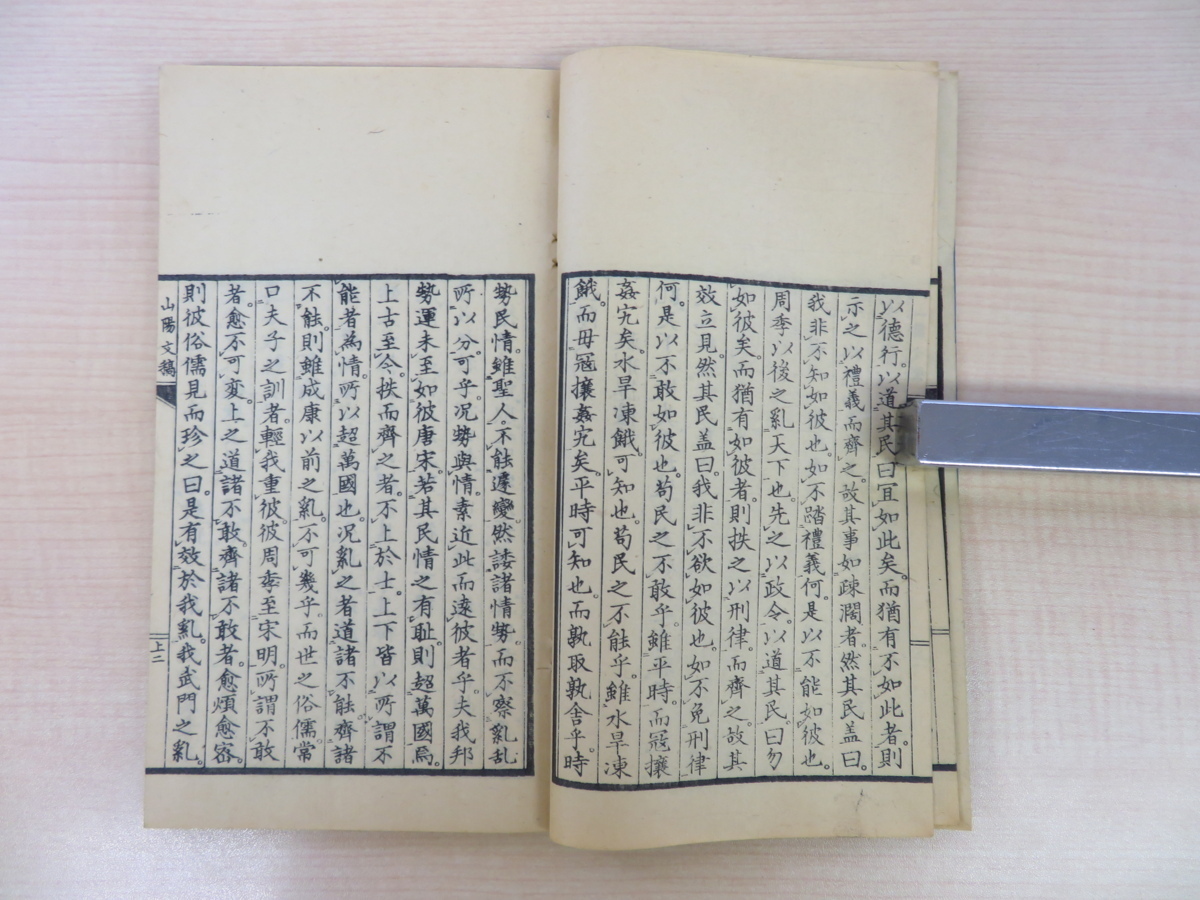 以德行以道其民曰宜如此矣而猶有不如此者則
示之以禮義而齊之故其事如疎濶者然其民盖曰
我非不知如彼也如不踏禮義何是以不能如彼也
周季以後之亂天下也先之以政令以道其民曰勿
如彼矣而猶有如彼者則扶之以刑律而齊之故其
效立見然其民盖曰我非不欲如彼也如不免刑律
何是以不敢如彼也苟民之不敢乎雖平時而冦攘
姦宄矣水旱凍餓可知也苟民之不能乎雖水旱凍
餓而毋冦攘姦宄矣平時可知也而孰取孰舎乎時
勢民情雖聖人不能遽變然諉諸情勢而不察亂乱
所以分可乎况勢與情素近此而遠彼者乎夫我邦
勢運未至如彼唐宋若其民情之有耻則超萬國焉
上古至今扶而齊之者不上於士上下皆以所謂不
能者為情所以超萬國也况亂之者道諸不能齊諸
不能則雖成康以前之亂不可幾乎而世之俗儒常
口夫子之訓者輕我重彼彼周季至宋明所謂不敢
者愈不可変上之道諸不敢齊諸不敢者愈煩愈宻
則彼俗儒見而珍之曰是有效於我亂我武門之亂
山陽文稿
上二